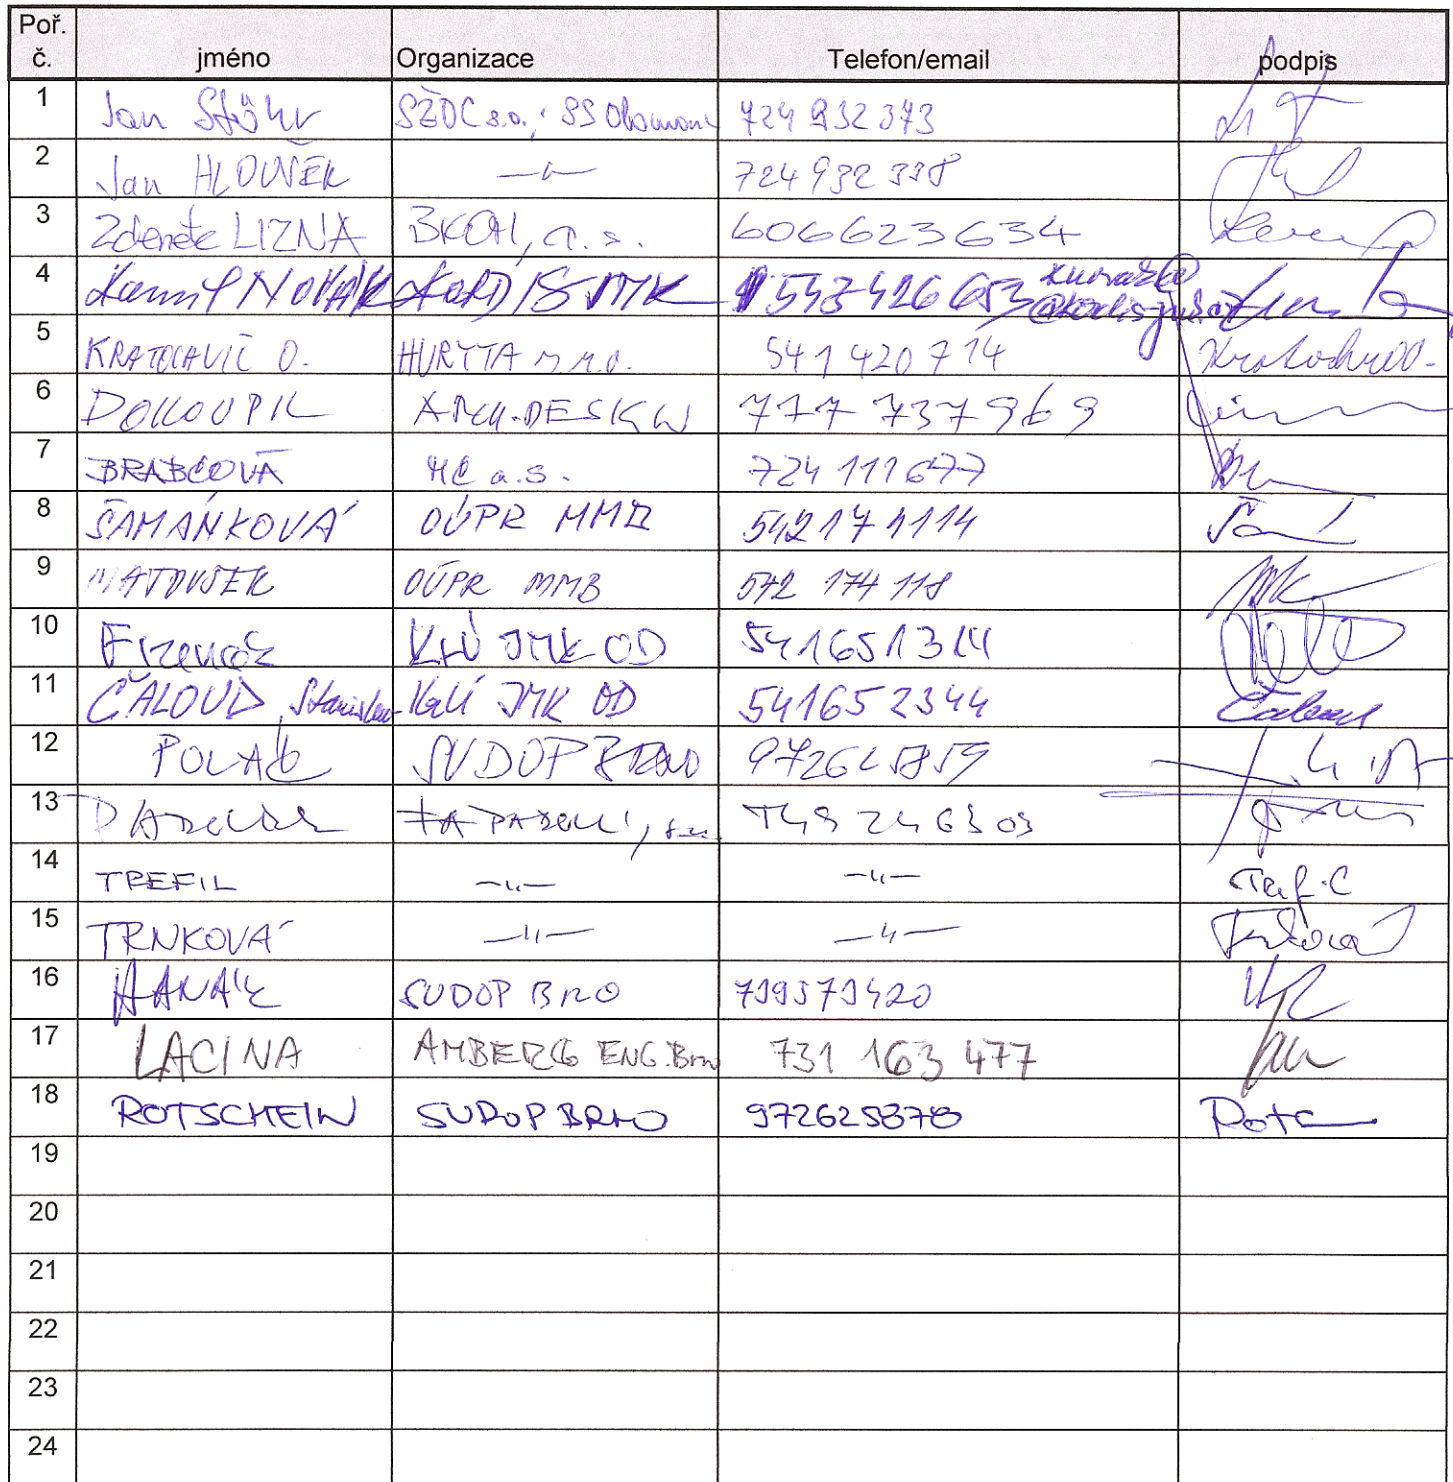 Poř. č. jméno Organizace Telefon/email podpis
1 Jan Stöhr SŽDC s.o., SS Olomouc 724 932 373
2 Jan HLOUŠEK —〃— 724 932 338
3 Zdeněk LIZNA BKOM, a.s. 606623634
4 Kamil NOVÁK KORDIS JMK 543426653
5 KRATOCHVÍL O. 541 420 714 Kratochvíl
6 DOKOUPIL ARCH.DESIGN 777 737 969
7 BRABCOVÁ MC a.s. 724 111 677
8 ŠAMÁNKOVÁ OÚPR MMB 542174114
9 MATOUŠEK OÚPR MMB 542 174 118
10 KrÚ JMK OD 541651314
11 ČALOUD Stanislav KrÚ JMK OD 541652344 Čaloud
12 POLÁK SUDOP BRNO
13
14 TREFIL —〃— —〃—
15 TRNKOVÁ —〃— —〃— Trnková
16 HANÁK SUDOP BRNO 739573420
17 LACINA AMBERG ENG. Brno 731 163 477
18 ROTSCHEIN SUDOP BRNO 972625878
19
20
21
22
23
24